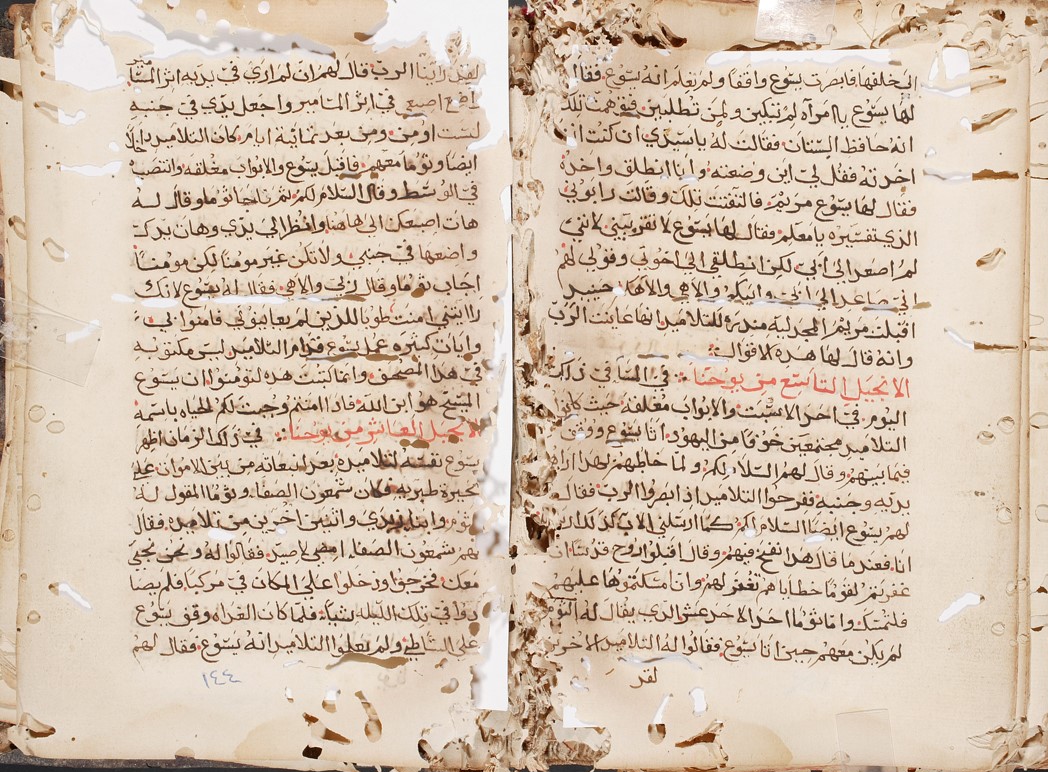 الى خلفها فابصرت يسوع واقفا ولم تعلم انه يسوع فقال
لها يسوع يا امرآه لم تبكين ولمن تطلبين فتوهمت تلك
انه حافظ البستان فقالت له ياسيدي ان كنت انت
اخدته فقل لي اين وضعته وانا انطلق واخده
فقال لها يسوع مريم فالتفتت تلك وقالت رابوني
الدي تفسيره يا معلم فقال لها يسوع لا تقربيني لانني
لم اصعد الى ابي لكن انطلقي الى اخوتي وقولي لهم
اني صاعد الى ابي وابيكم والاهي والاهكم حينيد
اقبلت مريم المجدلية مندره للتلاميد انها عاينت الرب
وانه قال لها هده الاقوال
الانجيل التاسع من يوحنا في المسا في دلك
اليوم في احد الاسبت والابواب مغلقه حيث كان
التلاميد مجتمعين خوفا من اليهود اتا يسوع ووقف
فيما بينهم وقال لهم السلام لكم ولما خاطبهم بهدا اراهم
يديه وجنبه ففرحوا التلاميد اد ابصروا الرب فقال
لهم يسوع ايضا السلام لكم كما ارسلني الاب كدلك ارسلكم
انا فعند ما قال هدا نفخ فيهم وقال اقبلوا روح قدس ان
غفرتم لقوم خطاياهم تغفر لهم وان مسكتموها عليهم
فلتمسك واما توما احد الاحد عشر الدي يقال له التوم
لم يكن معهم حين اتا يسوع فقالوا له التلاميد الاخرين
لقد
لقد راينا الرب قال لهم ان لم ارى في يديه اثر المسامير
واضع اصبعي في اثر المسامير واجعل يدي في جنبه
لست اومن ومن بعد تمانية ايام كان التلاميد داخلا
ايضا وتوما معهم فاقبل يسوع والابواب مغلقه وانتصب
في الوسط وقال السلام لكم تم جا توما وقال له
هات اصبعك الى هاهنا وانظر الى يدي وهات يدك
واضعها في جنبي ولا تكن غير مومنا لكن مومنا
اجاب توما وقال ربي والاهي فقال له يسوع لانك
راايتني امنت طوبا للدين لم يعاينوني فامنوا بي
وايات كتيره عمل يسوع قدام التلاميد ليس مكتوبه
في هدا المصحف وانما كتبت هده لتومنوا ان يسوع
المسيح هو ابن الله فادا امنتم وجبت لكم الحياه باسمه
الانجيل العاشر من يوحنا في دلك الزمان اظهر
يسوع نفسه لتلاميده بعد انبعاته من بين الاموات على
بحيرة طبريه فكان شمعون الصفا وتوما المقول له
توم وابنا زبدي واتنين اخرين من تلاميده فقال
لهم شمعون الصفا امضي لاصيد فقالوا له ونحن نجي
معك فخرجوا ودخلوا على المكان في مركبا فلم يصيدوا
في تلك الليله شيا فلما كان الغداه وقف يسوع
على الشاطي ولم يعلموا التلاميد انه يسوع فقال لهم
١٤٤